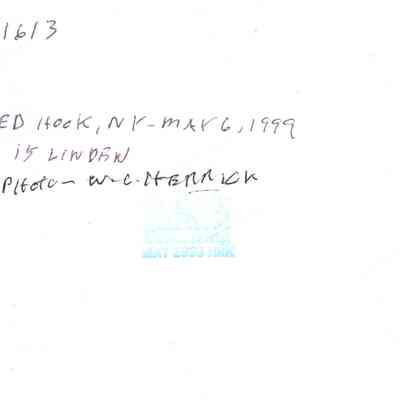 1613
ED HOOK, NY - MAY 6, 1999
15 LINDEN
PHOTO - W.C. HERRICK